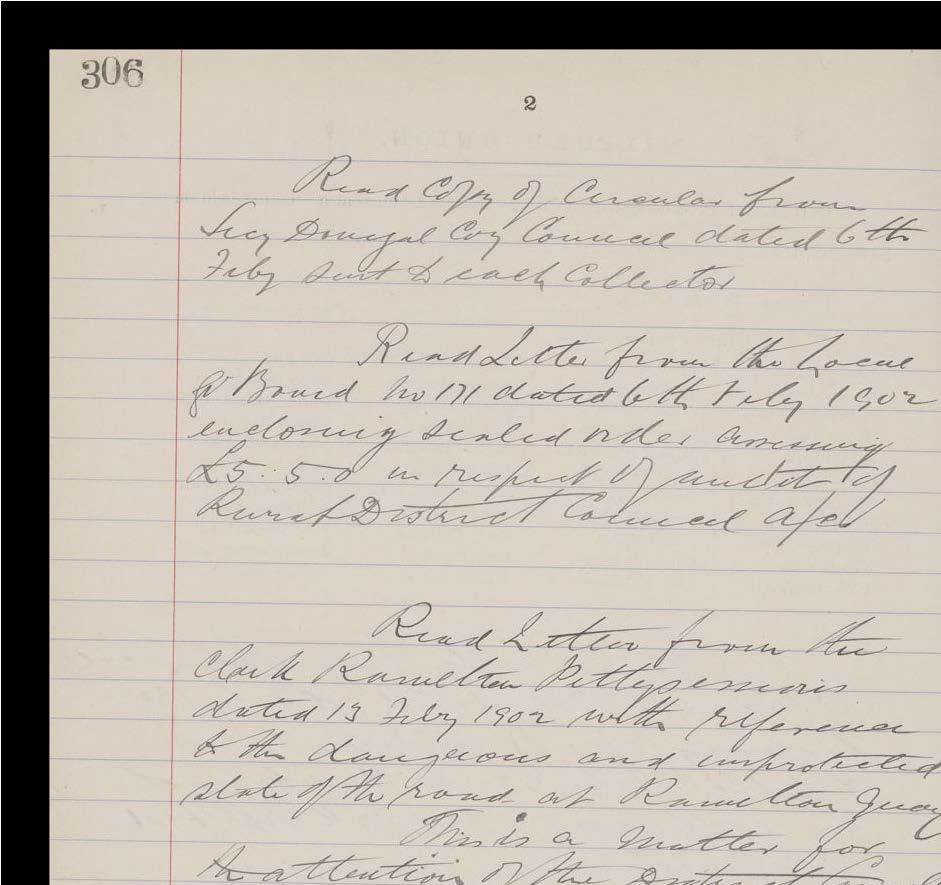 306
2
Read Copy of Circular from
Secy Donegal Coy Council dated 6th
Feby sent to each Collector
Read Letter from the Local
Gt Board No 171 dated 6th Feby 1902
enclosing sealed order assessing
£5:5.0 in respect of audit of
Rural District Council a/cs
Read Letter from the
Clerk Ramelton Pettysessions
dated 13 Feby 1902 with reference
to the dangerous and unprotected
state of the road at Ramelton Quay
This is a matter for
the attention of the District